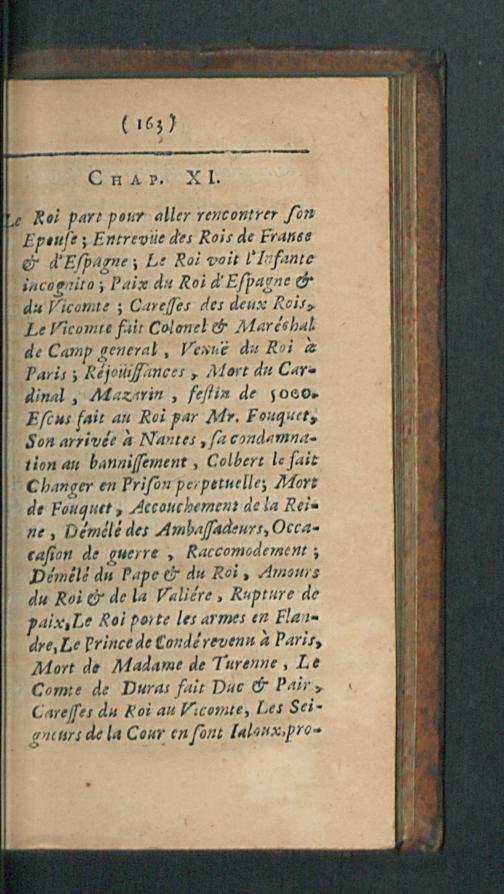 (163)
CHAP. XI.
Le Roi part pour aller rencontrer ſon
Epouſe ; Entrevüe des Rois de France
& d'Eſpagne ; Le Roi voit l'Infante
incognito ; Paix du Roi d'Eſpagne &
du Vicomte ; Careſſes des deux Rois,
Le Vicomte fait Colonel & Maréchal
de Camp general , Venuë du Roi à
Paris ; Réjoüiſſances , Mort du Car-
dinal , Mazarin , feſtin de 5000.
Eſcus fait au Roi par Mr. Fouquet,
Son arrivée à Nantes , ſa condamna-
tion au banniſſement , Colbert le fait
Changer en Priſon perpetuelle; Mort
de Fouquet , Accouchement de la Rei-
ne , Démélé des Ambaſſadeurs, Occa-
caſion de guerre , Raccomodement ;
Démélé du Pape & du Roi , Amours
du Roi & de la Valiére , Rupture de
paix, Le Roi porte les armes en Flan-
dre, Le Prince de Condé revenu à Paris,
Mort de Madame de Turenne , Le
Comte de Duras fait Duc & Pair ,
Careſſes du Roi au Vicomte, Les Sei-
gneurs de la Cour en ſont Ialoux, pro-